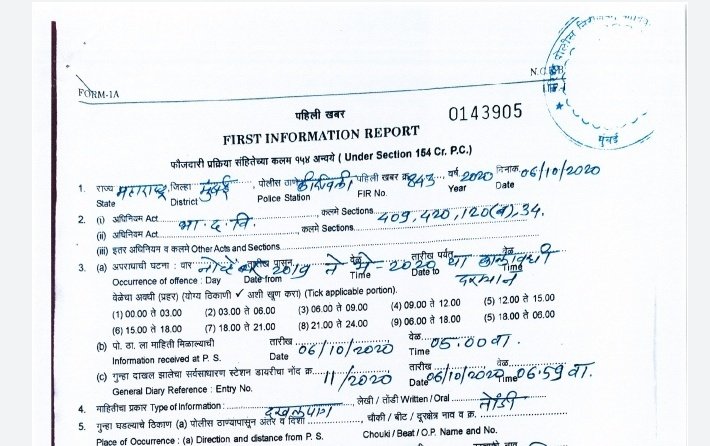 पोलीस
मुंबई
N.C.R.B
FORM-1A
पहिली खबर
0143905
FIRST INFORMATION REPORT
फौजदारी प्रक्रिया संहितेच्या कलम १५४ अन्वये ( Under Section 154 Cr. P.C.)
1. राज्य महाराष्ट्र जिल्हा मुंबई पोलीस ठाणे पहिली खबर क्र. 843 वर्ष 2020 दिनांक 06/10/2020
State District Police Station FIR No. Year Date
2. (i) अधिनियम Act भा. द. वि. कलमे Sections 409, 420, 120(ब), 34.
(ii) अधिनियम Act कलमे Sections
(iii) इतर अधिनियम व कलमे Other Acts and Sections
3. (a) अपराधाची घटना : वार नोव्हेंबर तारीख पासून 2019 ते वेळ मे-2020 तारीख पर्यंत या वेळ कालावधी
Occurrence of offence : Day Date from Time Date to Time दरम्यान
वेळेचा अवधी (प्रहर) (योग्य ठिकाणी ✓ अशी खुण करा) (Tick applicable portion).
(1) 00.00 ते 03.00 (2) 03.00 ते 06.00 (3) 06.00 ते 09.00 (4) 09.00 ते 12.00 (5) 12.00 ते 15.00
(6) 15.00 ते 18.00 (7) 18.00 ते 21.00 (8) 21.00 ते 24.00 (9) 06.00 ते 18.00 (5) 18.00 ते 06.00
(b) पो. ठा. ला माहिती मिळाल्याची तारीख 06/10/2020 वेळ 05:00 वा.
Information received at P. S. Date Time
(c) गुन्हा दाखल झालेचा सर्वसाधारण स्टेशन डायरीचा नोंद क्र. 11/2020 तारीख 06/10/2020 वेळ 06:59 वा.
General Diary Reference : Entry No. Date Time
4. माहितीचा प्रकार Type of Information : दखलपात्र लेखी / तोंडी Written / Oral तोंडी
5. गुन्हा घडल्याचे ठिकाण (a) पोलीस ठाण्यापासून अंतर व दिशा चौकी / बीट / दुरक्षेत्र नाव व क्र.
Place of Occurrence : (a) Direction and distance from P. S. Chouki / Beat / O.P. Name and No.